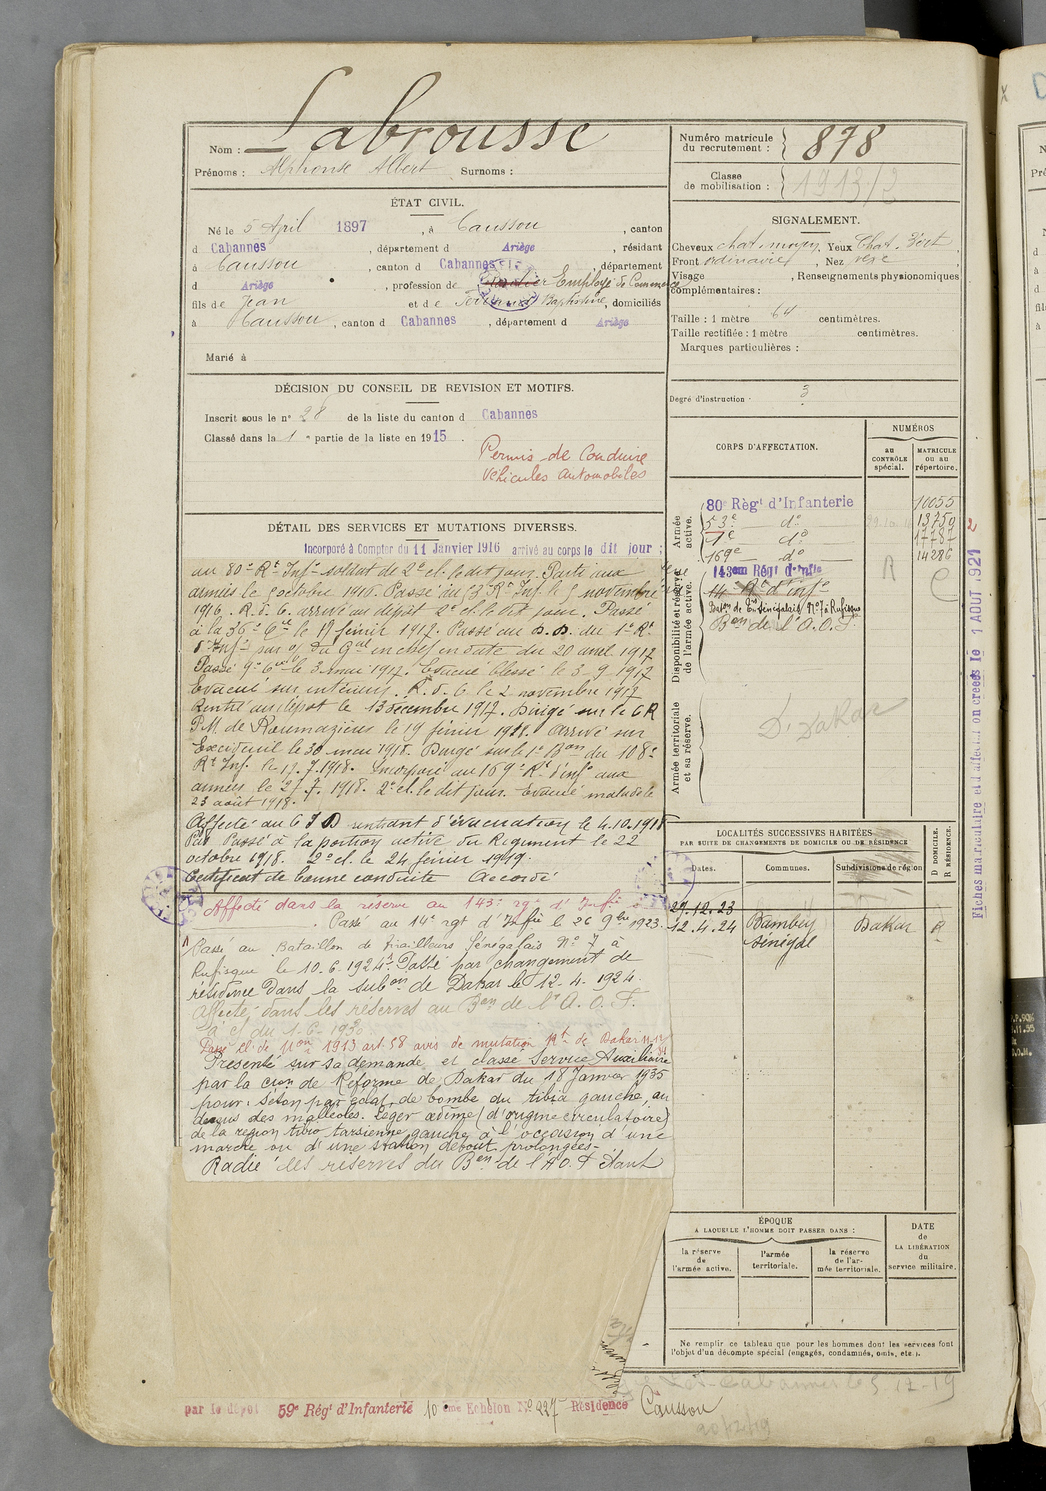 Nom : Labrousse
Prénoms : Alphonse Albert Surnoms :
Numéro matricule
du recrutement : 878
Classe
de mobilisation : 1913/2
ÉTAT CIVIL.
Né le 5 April 1897, à Caussou, canton
d Cabannes, département d Ariège, résidant
à Caussou, canton d Cabannes, département
d Ariège, profession de Employé de Commerce
fils de Jean et de Baptistine, domiciliés
à Caussou, canton d Cabannes, département d Ariège
Marié à
SIGNALEMENT.
Cheveux chat. moyen Yeux Chat. Vert
Front ordinaire, Nez
Visage , Renseignements physionomiques
complémentaires :
Taille : 1 mètre 64 centimètres.
Taille rectifiée : 1 mètre centimètres.
Marques particulières :
Degré d'instruction : 3
DÉCISION DU CONSEIL DE REVISION ET MOTIFS.
Inscrit sous le n° 28 de la liste du canton d Cabannes
Classé dans la 1 e partie de la liste en 1915.
Permis de Conduire
Véhicules Automobiles
CORPS D'AFFECTATION.
NUMÉROS
au
CONTRÔLE
spécial.
MATRICULE
ou au
répertoire.
Armée
active.
80e Régt d'Infanterie 10055
53e do 13759
1e do 17787
169e do 14286
Disponibilité et réserve
de l'armée active.
143eme Régt d'Infie
14e Rt d'Infie
Baton de tirs Sénégalais N°7 à Rufisque
Bon de l'A.O.F.
Armée territoriale
et sa réserve.
D. Dakar
DÉTAIL DES SERVICES ET MUTATIONS DIVERSES.
Incorporé à Compter du 11 Janvier 1916 arrivé au corps le dit jour ;
au 80e Rt Infie soldat de 2e cl. le dit jour. Parti aux
armées le 5 octobre 1916. Passé au 53e Rt Inf. le 5 novembre
1916. R. d. C. arrivé au dépôt 2e cl. le dit jour. Passé
à la 36e Cie le 17 février 1917. Passé au D. D. du 1e Rt
d'Infie par o/ du Gal en chef en date du 20 avril 1917
Passé 9e Cie le 3 mai 1917. Evacué blessé le 3-9 1917
Evacué sur intérieur. R. d. C le 2 novembre 1917
Rentré au dépôt le 13 décembre 1917. Dirigé sur le C R
P.M. de Roumazières le 19 février 1918. arrivé sur
Excideuil le 30 mai 1918. Dirigé sur le 1e Bon du 108e
Rt Inf. le 17.7.1918. Incorporé au 169e Rt d'Infie aux
armées le 27.7.1918. 2e cl. le dit jour. Evacué malade le
23 août 1918.
Affecté au C I D rentrant d'évacuation le 4.10.1918
Passé à la portion active du Régiment le 22
octobre 1918. 2e cl. le 24 février 1919.
Certificat de bonne conduite Accordé
Affecté dans la réserve au 143e rgt d'Infie
Passé au 14e rgt d'Infie le 26 9bre 1923.
Passé au Bataillon de tirailleurs Sénégalais N° 7 à
Rufisque le 10-6-1924. Passé par changement de
résidence dans la subon de Dakar le 12-4-1924
Affecté dans les réserves au Bon de l'A.O.F.
à cf du 1-6-1930
Passé cl. de mon 1913 art 58 avis de mutation de Dakar
Présenté sur sa demande et classé Service Auxiliaire
par la Cion de Réforme de Dakar du 18 Janvier 1935
pour : Séton par éclat de bombe du tibia gauche, au
dessus des malléoles. Léger œdème (d'origine circulatoire)
de la région tibio tarsienne gauche à l'occasion d'une
marche ou d'une station debout prolongées-
Radié des réserves du Bon de l'A O F étant
LOCALITÉS SUCCESSIVES HABITÉES
PAR SUITE DE CHANGEMENTS DE DOMICILE OU DE RÉSIDENCE
Dates. Communes. Subdivisions de région D. DOMICILE. R. RÉSIDENCE.
29.12.23
12.4.24 Bambey Dakar R
Sénégal
ÉPOQUE
A LAQUELLE L'HOMME DOIT PASSER DANS :
la réserve
de
l'armée active.
l'armée
territoriale.
la réserve
de l'ar-
mée territoriale.
DATE
de
LA LIBÉRATION
du
service militaire.
Ne remplir ce tableau que pour les hommes dont les services font
l'objet d'un décompte spécial (engagés, condamnés, omis, etc.).
Fiches matriculaire et d'affectation créées le 1 AOUT 1921
par le dépôt 59e Régt d'Infanterie 10eme Echelon N° 227 Résidence Caussou